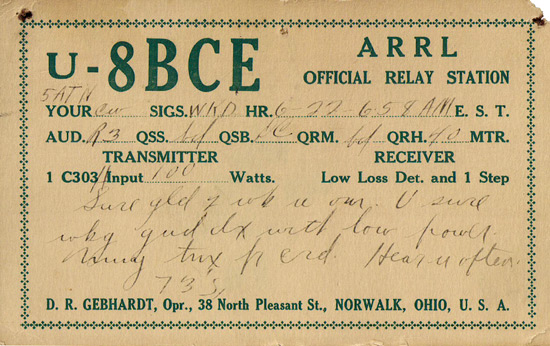 U-8BCE
ARRL
OFFICIAL RELAY STATION
YOUR cw SIGS. WKD HR. 6-22 6:58 AM E. S. T.
AUD. R3 QSS. QSB. DC QRM. QRH. 40 MTR.
TRANSMITTER RECEIVER
1 C303A Input 100 Watts. Low Loss Det. and 1 Step
Sure gld to wk u om. U sure
wkg gud dx with low power.
Many tnx fr crd. Hear u often.
73's
D. R. GEBHARDT, Opr., 38 North Pleasant St., NORWALK, OHIO, U. S. A.